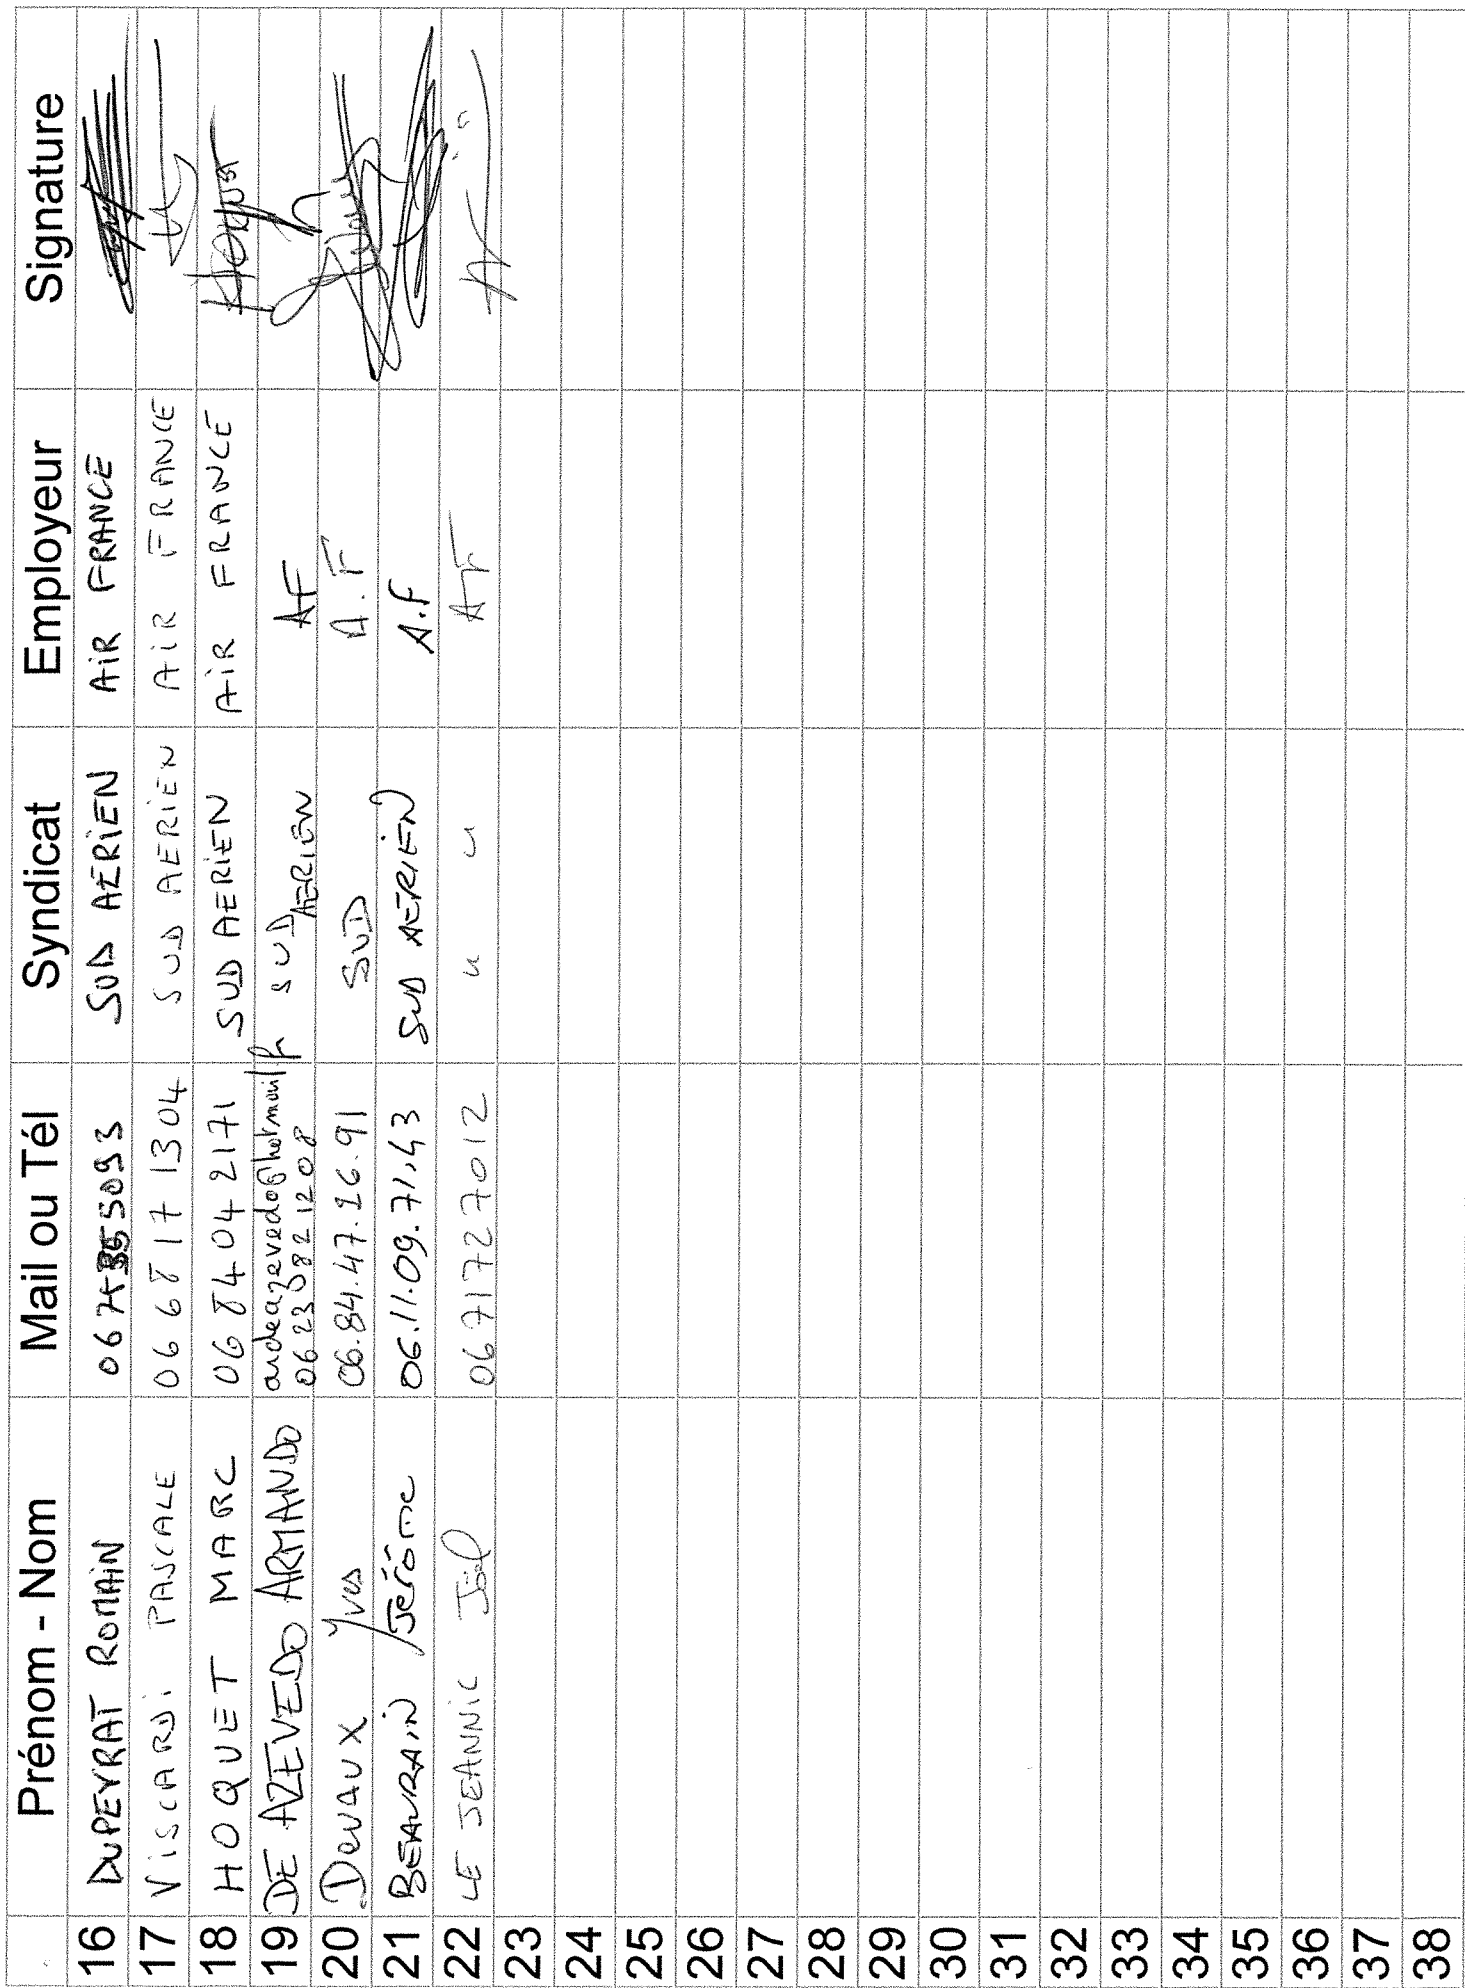 Prénom - Nom Mail ou Tél Syndicat Employeur Signature
16 DUPEYRAT ROMAIN SUD AÉRIEN AiR FRANCE
17 ViSCARDi PASCALE 0668171304 SUD AERIEN AiR FRANCE
18 HOQUET MARC 0684042171 SUD AERIEN AiR FRANCE
19 DE AZEVEDO ARMANDO ardeazevedo@hotmail.fr SUD AERIEN AF
06230821208
20 Devaux Yves 06.84.47.26.91 SUD A.F
21 BEAURAiN Jérôme 06.11.09.71.43 SUD AERIEN A.F
22 LE JEANNiC Joël 0671727012 " " AF
23
24
25
26
27
28
29
30
31
32
33
34
35
36
37
38